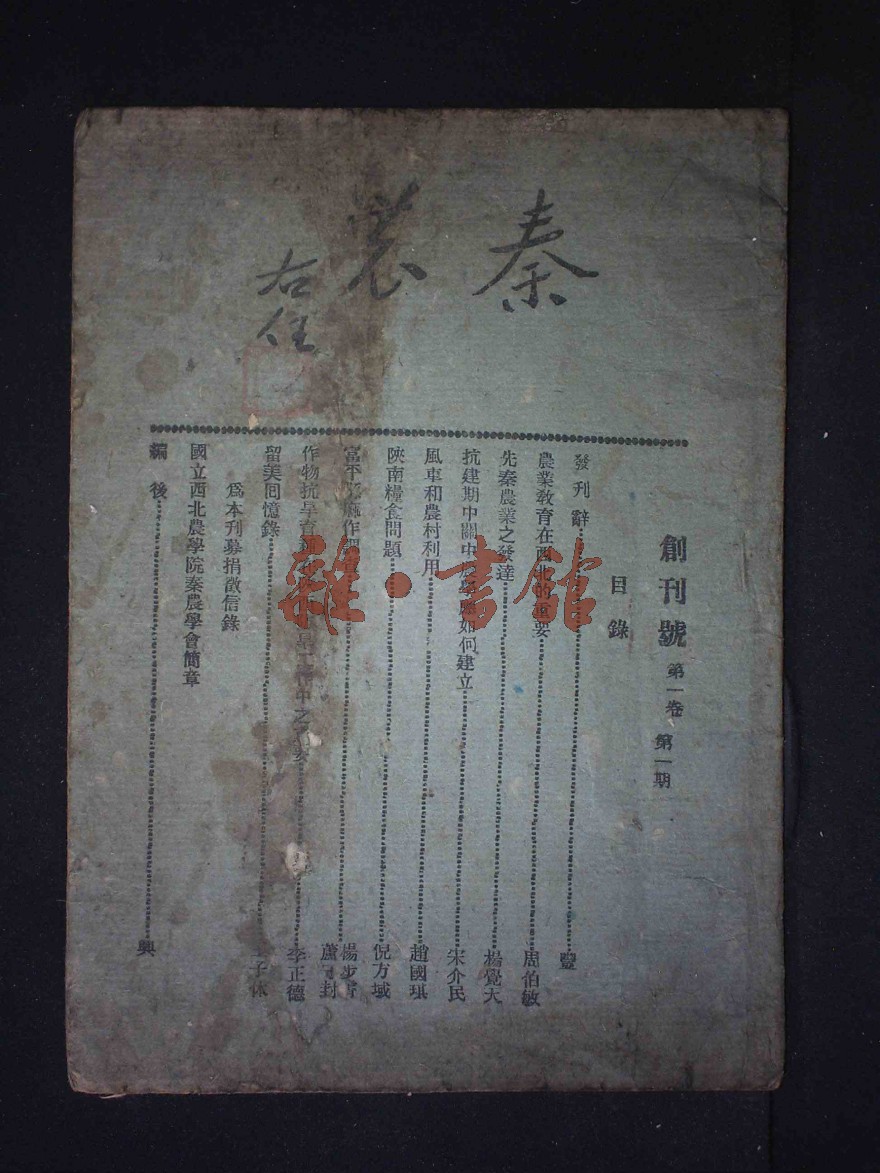 秦農
右任
創刊號 第一卷 第一期
目錄
發刊辭 豐
農業教育在西北的重要 周伯敏
先秦農業之發達 楊覺天
抗建期中關中農學 如何建立 宋介民
風車和農村利用 趙國琪
陝南糧食問題 倪方域
富平 麻作調 楊步
蘆 封
作物抗旱育 中之 李正德
留美回憶錄 子休
為本刊募捐徵信錄
國立西北農學院秦農學會簡章
編後 興
雜·書館